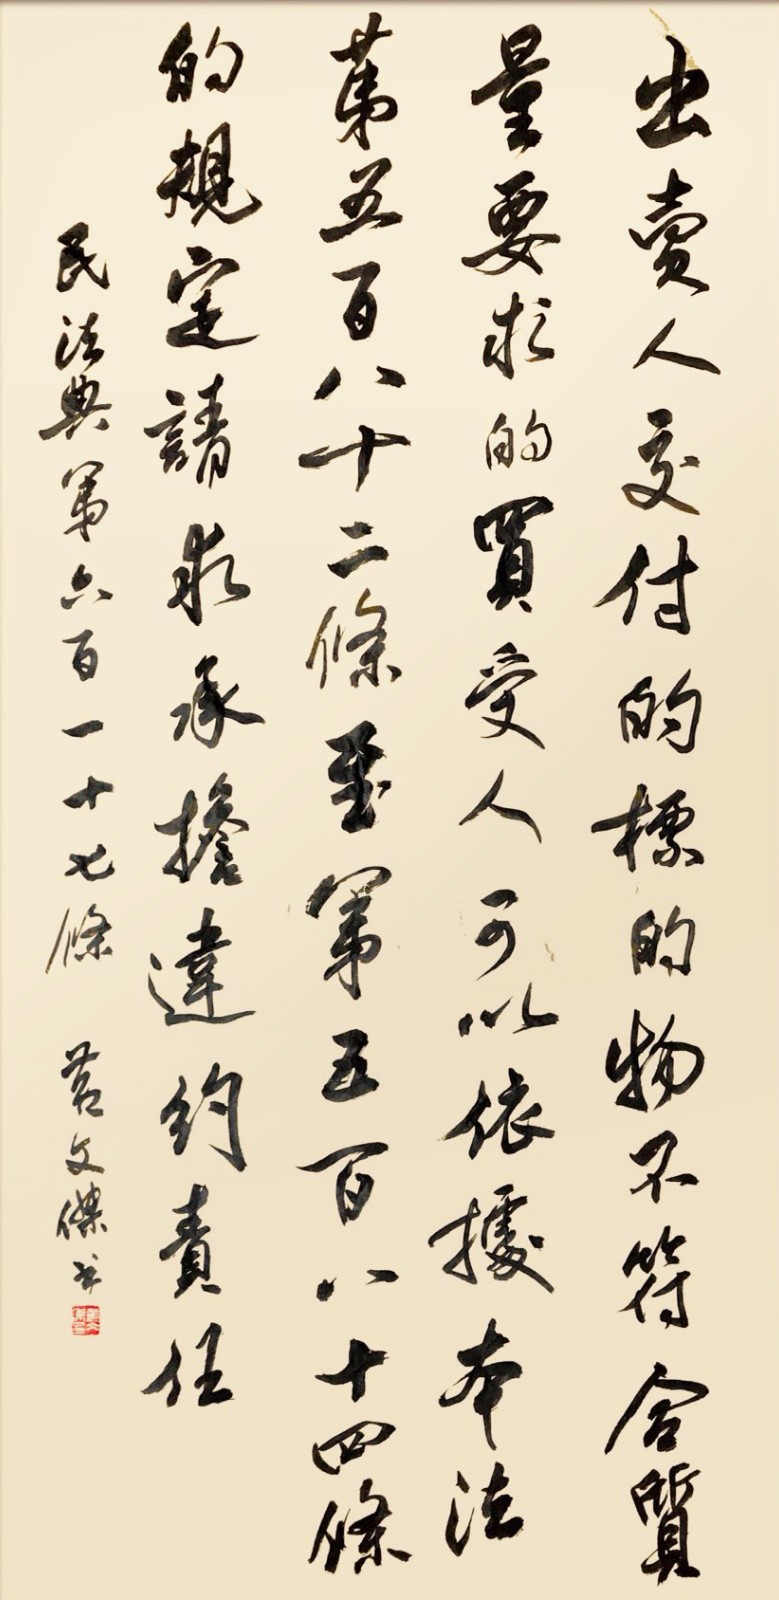 出賣人交付的標的物不符合質
量要求的買受人可以依據本法
第五百八十二條至第五百八十四條
的規定請求承擔違約責任
民法典第六百一十七條 文傑书